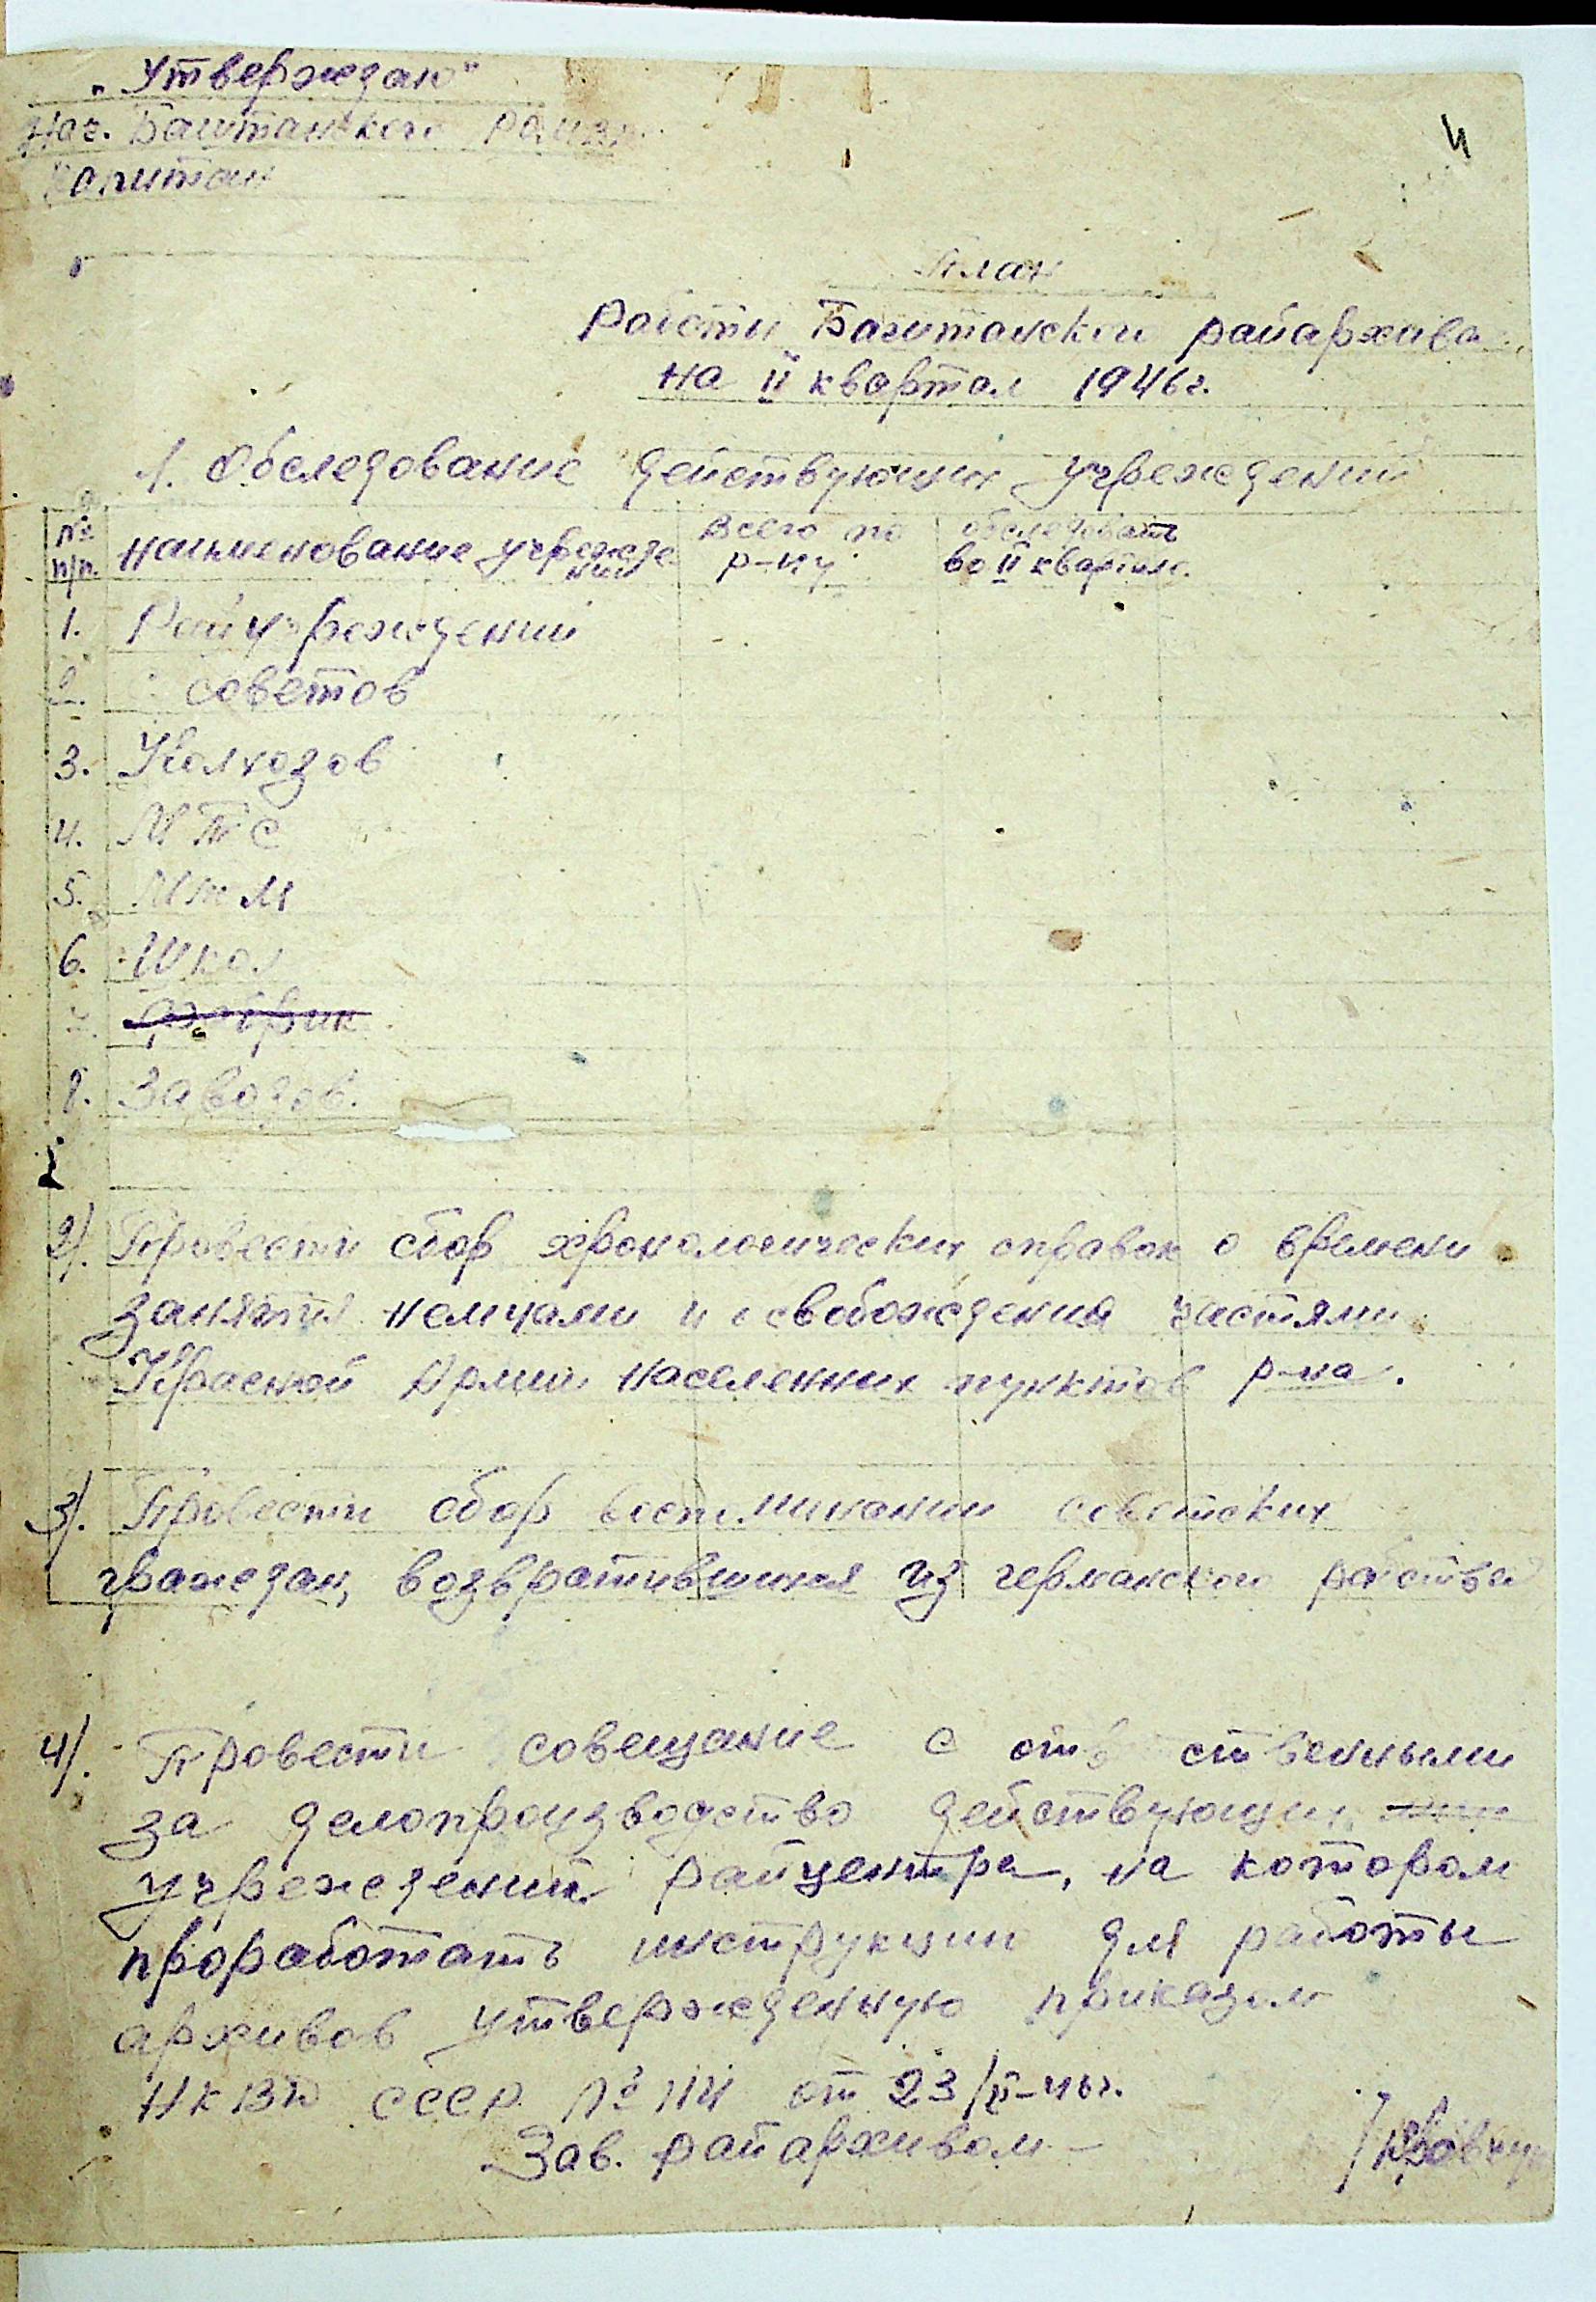 „Утверждаю"
Нач. Баштанского
Капитан
4
План
Работы Баштанского райархива
на II квартал 1946г.
1. Обследование действующих учреждений
№ п/п. наименование учрежде ний всего по р-ну обследоват во II квартале.
1. Райучреждений
2. советов
3. Колхозов
4. МТС
5.
6. Школ
7. Фабрик
8. Заводов.
2). Провести сбор хронологических справок о времени
занятия немцами и освобождения частями
Красной Армии населенных пунктов р-на.
3). Провести сбор воспоминании советских
граждан, возвратившихся из германского рабства
4). Провести совещание с ответственными
за делопроизводство действующих
учреждений райцентра, на котором
проработать инструкцию для работы
архивов утвержденную приказом
НКВД СССР № 114 от 23/II-46г.
Зав. райархивом —